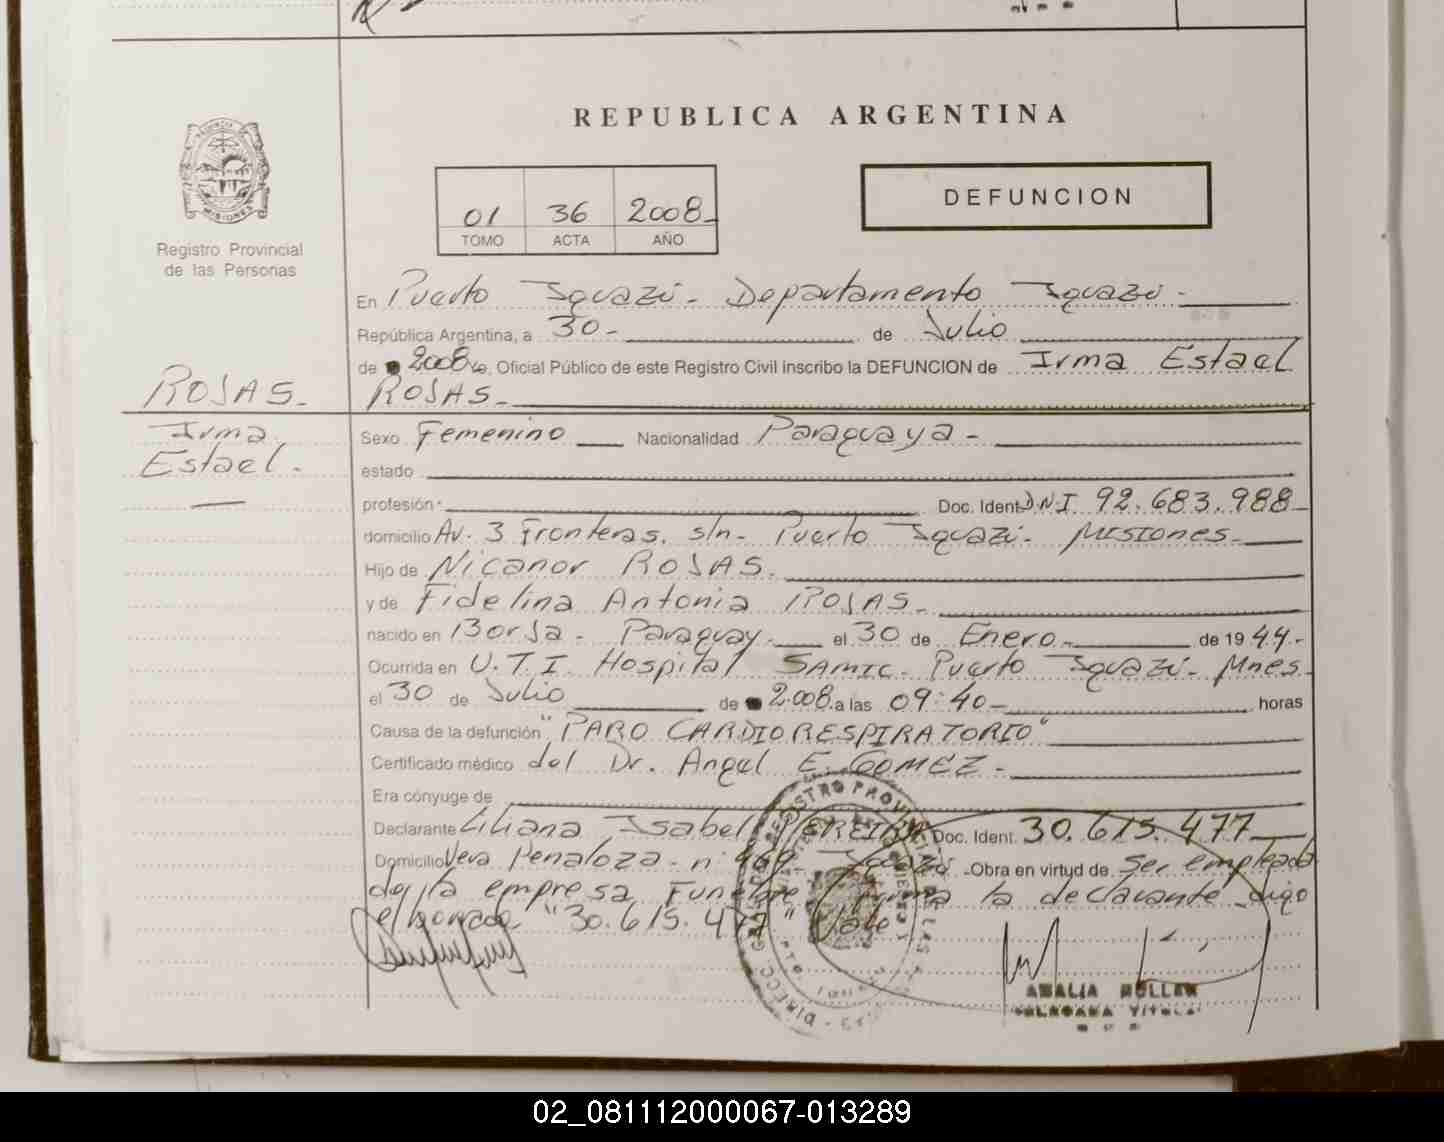 REPUBLICA ARGENTINA
PROVINCIA DE
MISIONES
Registro Provincial
de las Personas
01 36 2008-
TOMO ACTA AÑO
DEFUNCION
En Puerto Iguazú - Departamento Iguazú -
República Argentina, a 30 - de Julio
de 2008 Oficial Público de este Registro Civil inscribo la DEFUNCION de Irma Estael
ROJAS -
ROJAS -
Irma
Estael -
Sexo Femenino Nacionalidad Paraguaya -
estado
profesión Doc. Ident. D.N.I 92.683.988-
domicilio Av. 3 Fronteras. s/n - Puerto Iguazú - MISIONES -
Hijo de Nicanor ROJAS.
y de Fidelina Antonia ROJAS -
nacido en Borja - Paraguay - el 30 de Enero - de 1944 -
Ocurrida en U.T.I. Hospital SAMIC - Puerto Iguazú - Mnes -
el 30 de Julio de 2.008 a las 09:40 - horas
Causa de la defunción "PARO CARDIORESPIRATORIO"
Certificado médico del Dr. Angel E. GOMEZ -
Era cónyuge de
Declarante Liliana Isabel PEREIRA Doc. Ident. 30.615.477
Domicilio Vera Penaloza - n° 969 Iguazú - Obra en virtud de Ser empleada
de la empresa Funebre firma la declarante - digo
el borrado "30.615.477" Vale
AMALIA MULLER
DELEGADA TITULAR
02_081112000067-013289